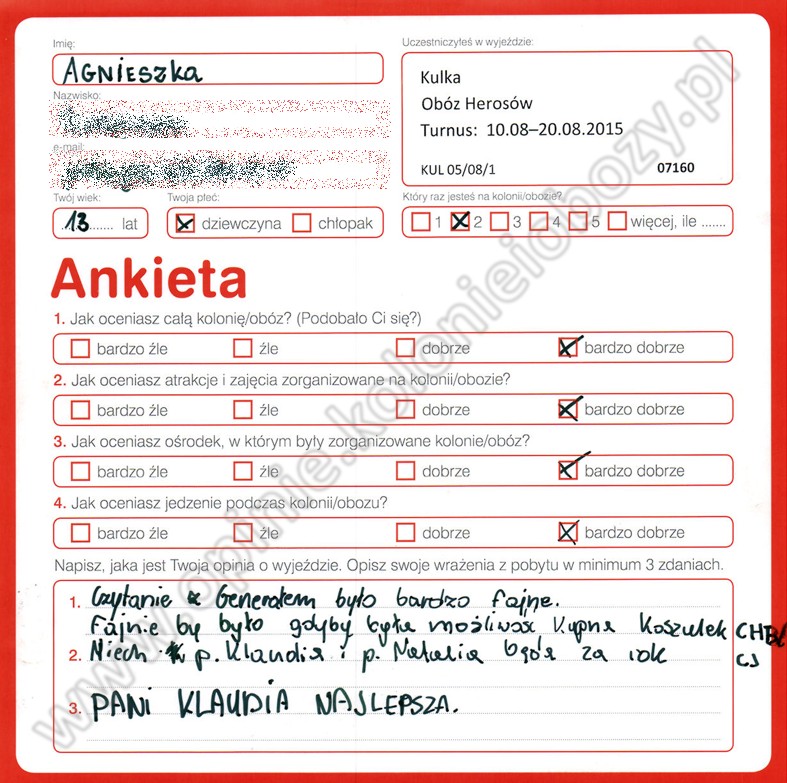 Imię:
AGNIESZKA
Nazwisko:
e-mail:
Twój wiek:
13 lat
Twoja płeć:
dziewczyna chłopak
Uczestniczyłeś w wyjeździe:
Kulka
Obóz Herosów
Turnus: 10.08–20.08.2015
KUL 05/08/1 07160
Który raz jesteś na kolonii/obozie?
1 2 3 4 5 więcej, ile .......
Ankieta
1. Jak oceniasz całą kolonię/obóz? (Podobało Ci się?)
bardzo źle źle dobrze bardzo dobrze
2. Jak oceniasz atrakcje i zajęcia zorganizowane na kolonii/obozie?
bardzo źle źle dobrze bardzo dobrze
3. Jak oceniasz ośrodek, w którym były zorganizowane kolonie/obóz?
bardzo źle źle dobrze bardzo dobrze
4. Jak oceniasz jedzenie podczas kolonii/obozu?
bardzo źle źle dobrze bardzo dobrze
Napisz, jaka jest Twoja opinia o wyjeździe. Opisz swoje wrażenia z pobytu w minimum 3 zdaniach.
1. Czytanie z Generałem było bardzo fajne.
Fajnie by było gdyby była możliwość kupna koszulek CHB
2. Niech p. Klaudia i p. Natalia będą za rok
3. PANI KLAUDIA NAJLEPSZA.
www.opinie.kolonieiobozy.pl